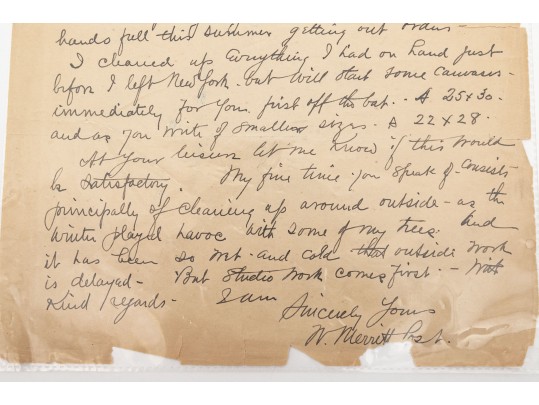 hands full this summer getting out orders—
I cleaned up everything I had on hand just
before I left New York - but will start some canvases -
immediately for you, first off the bat. . A 25 x 30.
and as you write of smaller sizes. A 22 x 28.
At your leisure let me know if this would
be satisfactory. My fine time you speak of - consists
principally of cleaning up around outside - as the
winter played havoc with some of my trees. And
it has been so wet - and cold that outside work
is delayed - But studio work comes first. - With
Kind regards - I am
Sincerely Yours
W. Merritt Post.